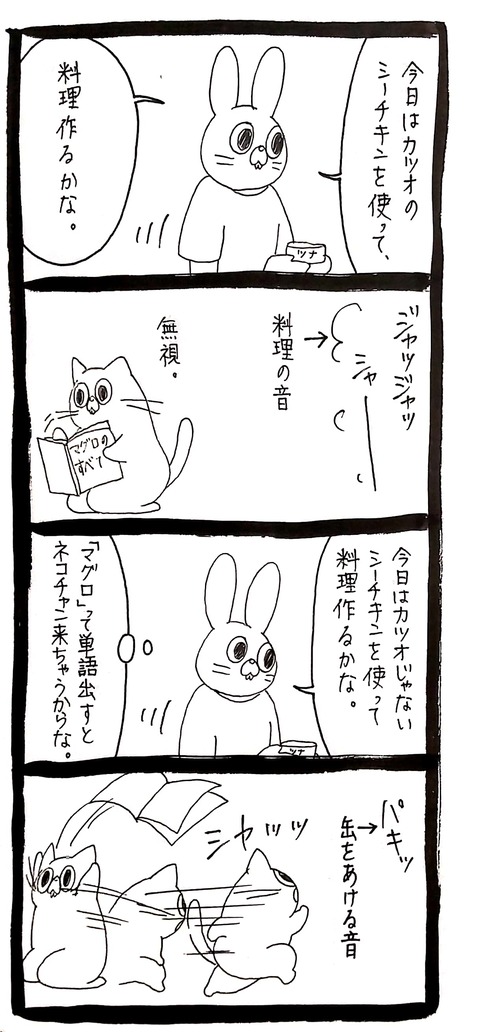 今日はカツオの
シーチキンを使って、
料理作るかな。
ツナ
ジャッジャッ
シャーッ
→
料理の音
無視。
マグロの
すべて
今日はカツオじゃない
シーチキンを使って
料理作るかな。
ツナ
「マグロ」って単語出すと
ネコチャン来ちゃうからな。
パキッ
→
缶をあける音
シャッッ